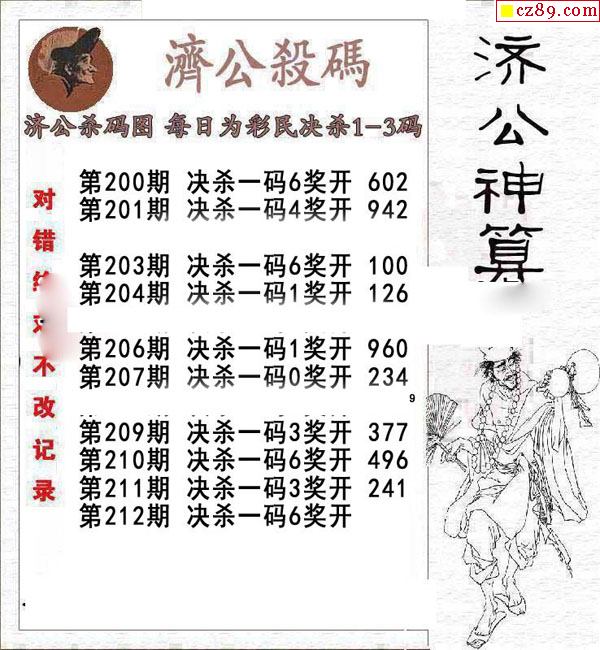 cz89.com
濟公殺碼
济公杀码图 每日为彩民决杀1-3码
第200期 决杀一码6奖开 602
第201期 决杀一码4奖开 942
第203期 决杀一码6奖开 100
第204期 决杀一码1奖开 126
第206期 决杀一码1奖开 960
第207期 决杀一码0奖开 234
9
第209期 决杀一码3奖开 377
第210期 决杀一码6奖开 496
第211期 决杀一码3奖开 241
第212期 决杀一码6奖开
对错
不改记录
济公神算